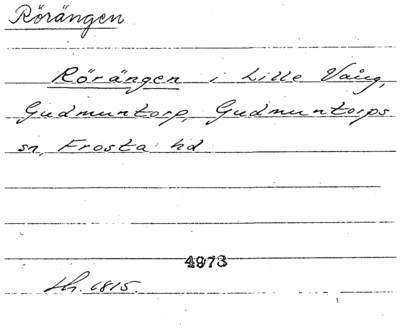 Rörängen
Rörängen i Lille Vång,
Gudmuntorp, Gudmuntorps
sn, Frosta hd
4973
Lh. 1815.